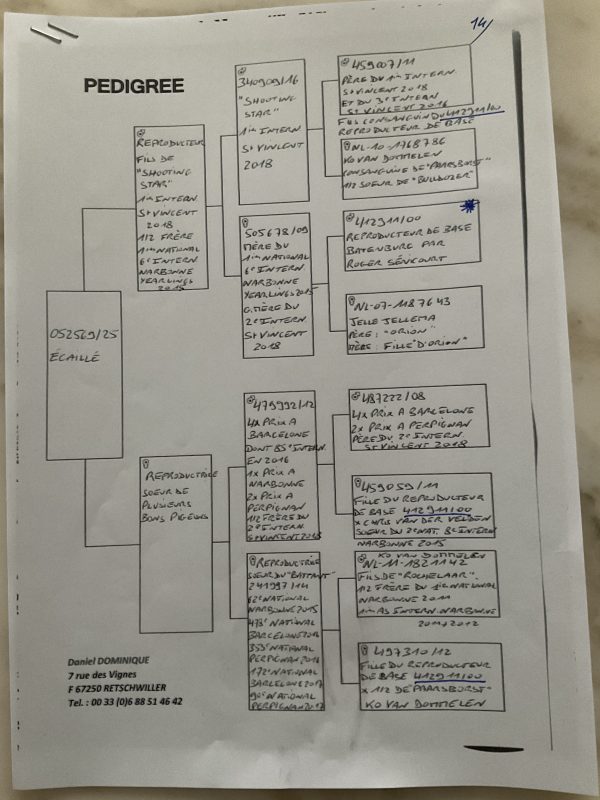 14/
PEDIGREE
052569/25
ÉCAILLÉ
REPRODUCTEUR
FILS DE
"SHOOTING
STAR"
1er INTERN.
St VINCENT
2018
1/2 FRÈRE
1er NATIONAL
6e INTERN.
NARBONNE
YEARLINGS
2015
REPRODUCTRICE
SOEUR DE
PLUSIEURS
BONS PIGEONS
340909/16
"SHOOTING
STAR"
1er INTERN.
St VINCENT
2018
505678/09
MÈRE DU
1er NATIONAL
6e INTERN.
NARBONNE
YEARLINGS 2015
G.MÈRE DU
2e INTERN.
St VINCENT
2018
479992/12
4x PRIX A
BARCELONE
DONT 85e INTERN.
EN 2016
1x PRIX A
NARBONNE
2x PRIX A
PERPIGNAN
1/2 FRÈRE DU
2e INTERN.
St VINCENT 2018
REPRODUCTRICE
SOEUR DU "BATTANT"
241997/14
62e NATIONAL
NARBONNE 2015
478e NATIONAL
BARCELONE 2016
353e NATIONAL
PERPIGNAN 2016
172e NATIONAL
BARCELONE 2017
90e NATIONAL
PERPIGNAN 2017
459007/11
PÈRE DU 1er INTERN.
St VINCENT 2018
ET DU 3e INTERN.
St VINCENT 2016
FILS CONSANGUIN DU 412911/00
REPRODUCTEUR DE BASE
NL-10-1768786
KO VAN DOMMELEN
CONSANGUINE DE "PAARSBORST"
1/2 SOEUR DE "BULLDOZER"
412911/00
REPRODUCTEUR DE BASE
BATENBURG PAR
ROGER SÉNÉCOURT
NL-07-1187643
JELLE JELLEMA
PÈRE: "ORION"
MÈRE: FILLE "D'ORION"
487222/08
4x PRIX A BARCELONE
2x PRIX A PERPIGNAN
PÈRE DU 2e INTERN.
St VINCENT 2018
459059/11
FILLE DU REPRODUCTEUR
DE BASE 412911/00
x CHRIS VAN DER VELDEN
SOEUR DU 2e NAT. 8e INTERN
NARBONNE 2015
KO VAN DOMMELEN
NL-11-1821142
FILS DE "ROCHELAAR"
1/2 FRÈRE DU 1er NATIONAL
NARBONNE 2011
1er AS INTERN. NARBONNE
2011+2012
497310/12
FILLE DU REPRODUCTEUR
DE BASE 412911/00
x 1/2 DE "PAARSBORST"
KO VAN DOMMELEN
Daniel DOMINIQUE
7 rue des Vignes
F 67250 RETSCHWILLER
Tel. : 00 33 (0)6 88 51 46 42